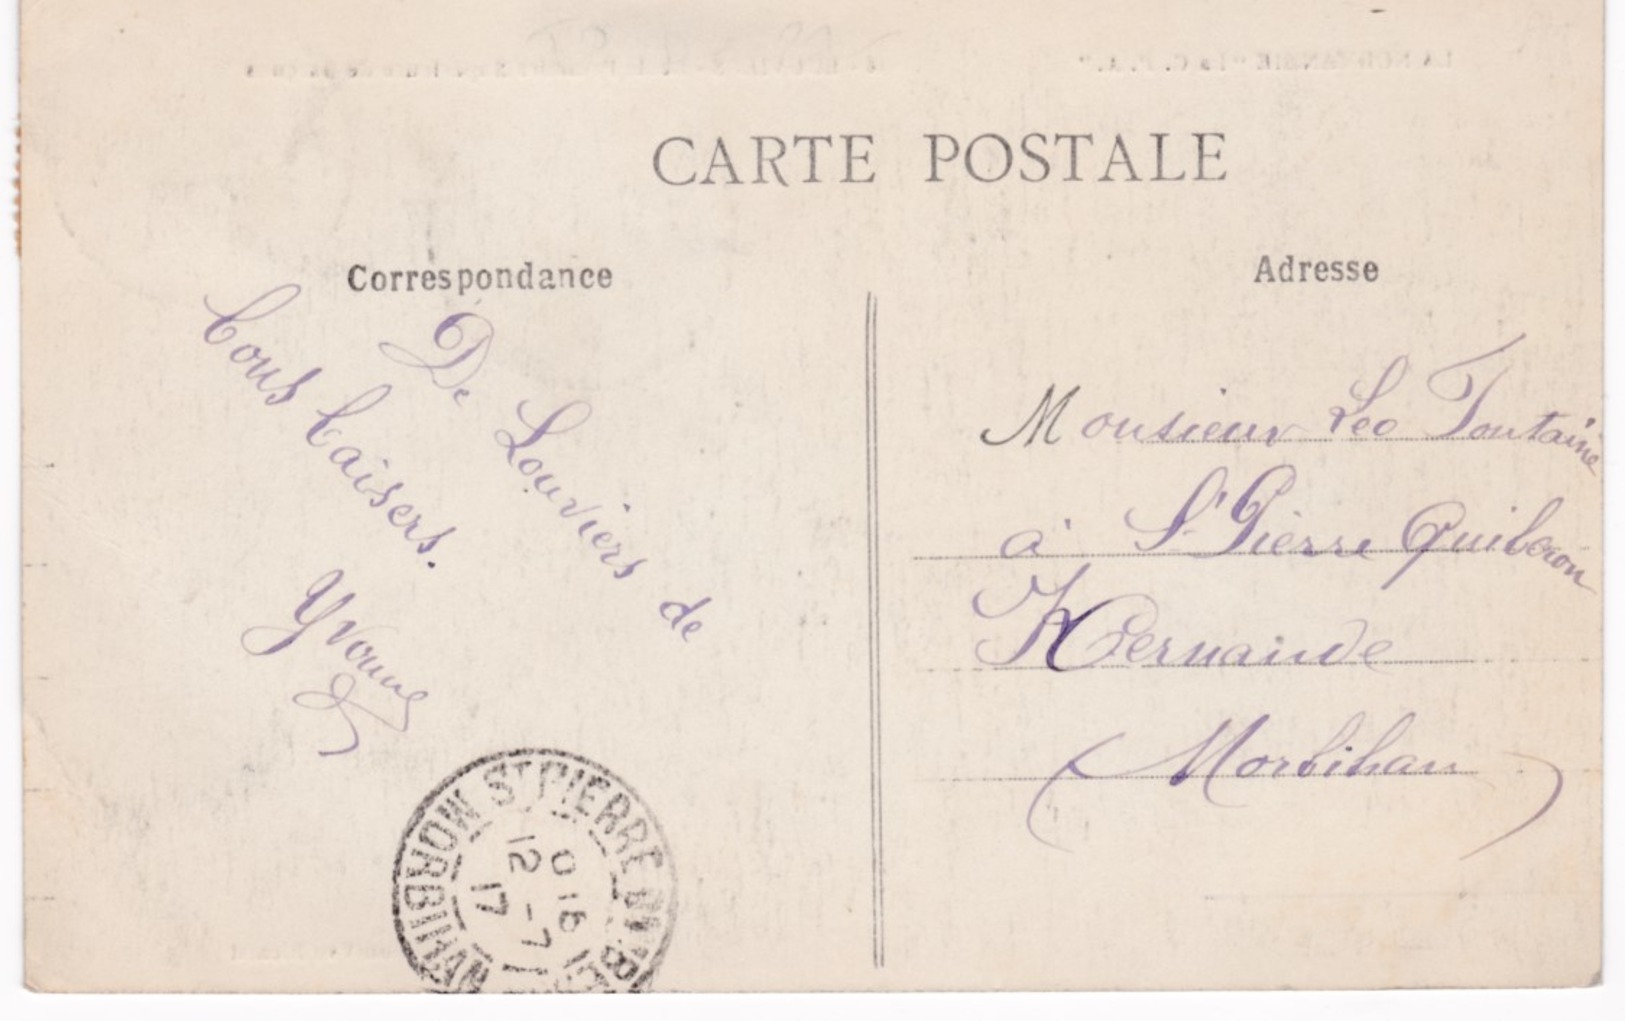 CARTE POSTALE
Correspondance
De Louviers de
bons baisers.
Yvonne
Adresse
Monsieur Leo Fontaine
à St Pierre Quiberon
Kernaude
(Morbihan)
ST PIERRE
MORBIHAN
12 - 7
17